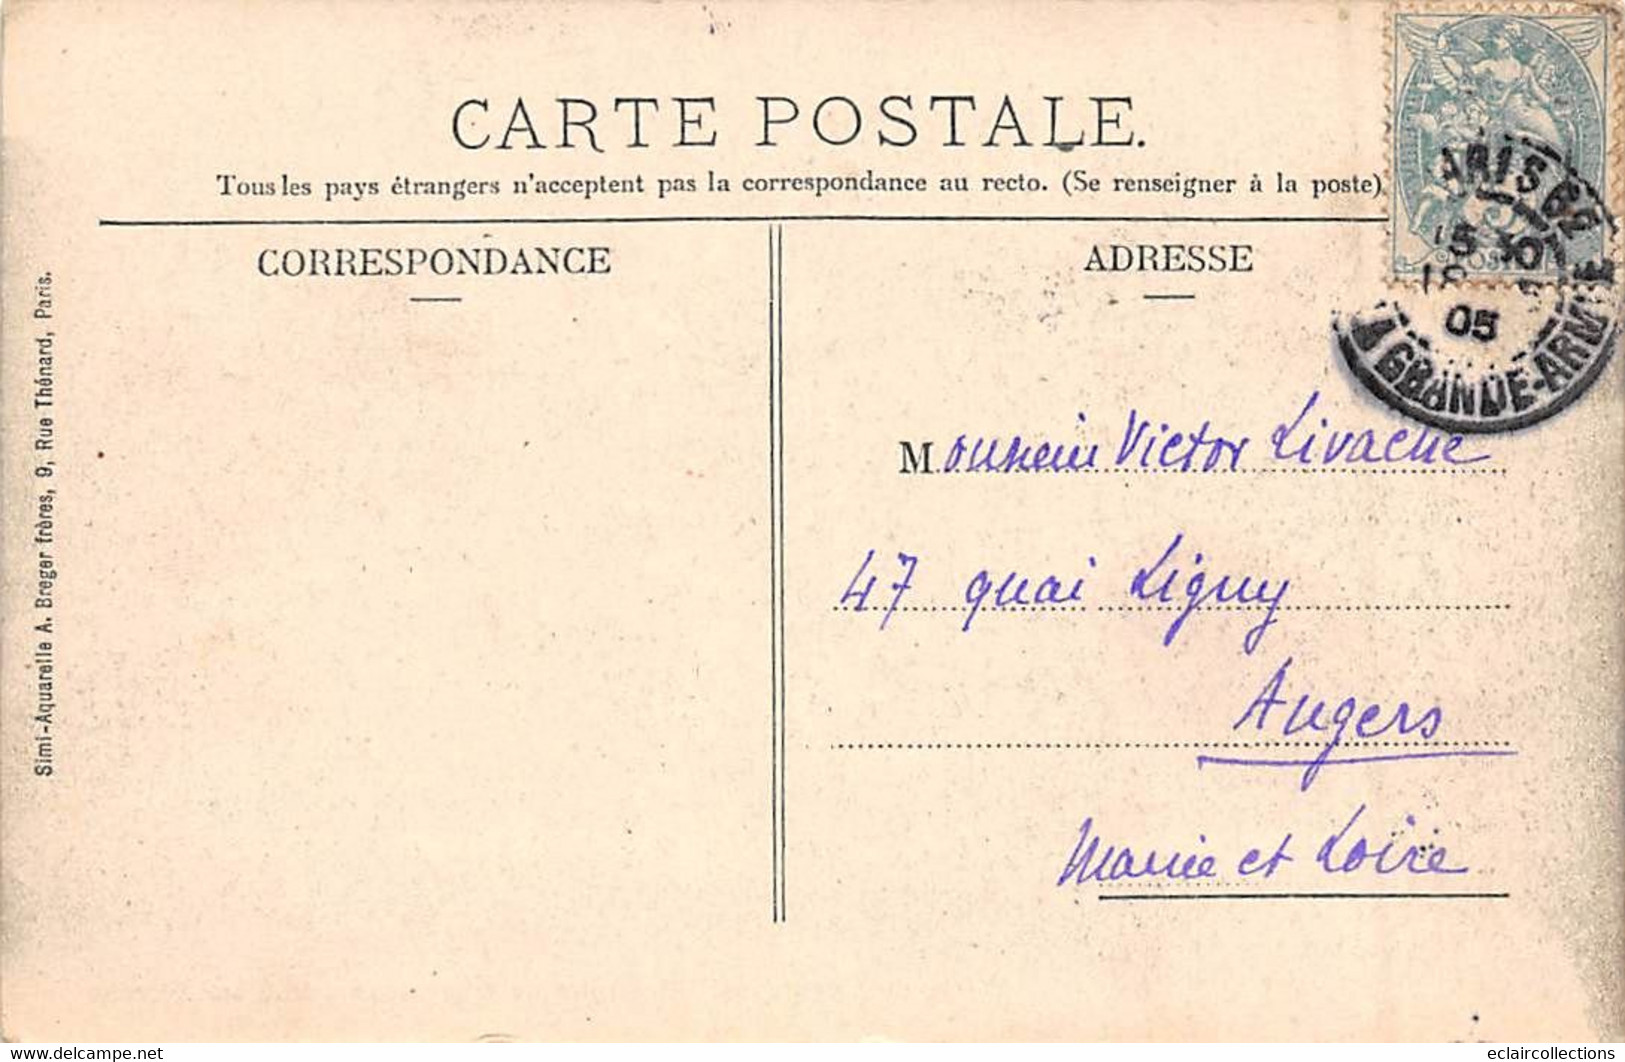 CARTE POSTALE.
Tous les pays étrangers n'acceptent pas la correspondance au recto. (Se renseigner à la poste)
CORRESPONDANCE
ADRESSE
Simi-Aquarelle A. Breger frères, 9, Rue Thénard, Paris.
ARIS 62
15 30
05
GRANDE-ARMEE
Monsieur Victor Livache
47 quai Ligny
Angers
Maine et Loire
delcampe.net
eclaircollections